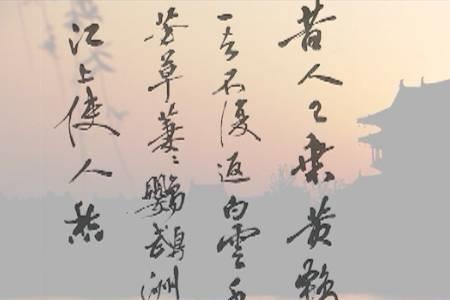 昔人已乘黄鹤
一去不復返白雲千
芳草萋〻鸚鵡洲
江上使人愁